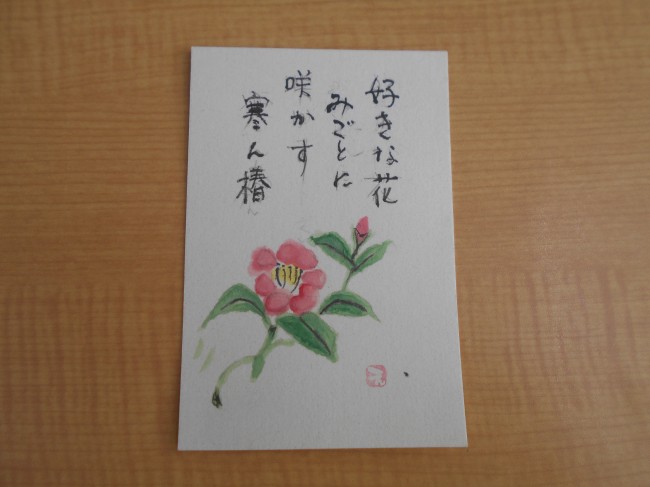 好きな花
みごとに
咲かす
寒ん椿